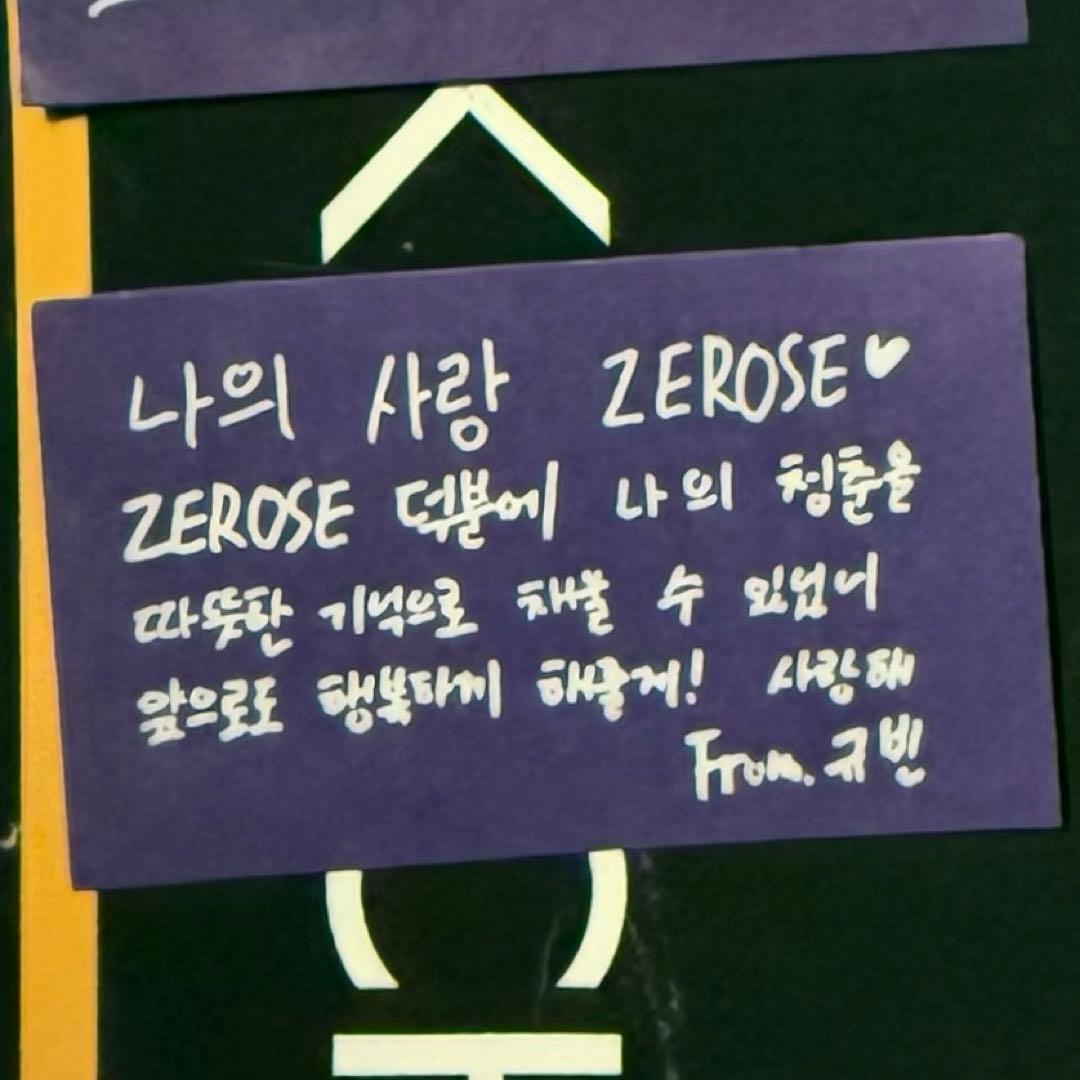 나의 사랑 ZEROSE♥
ZEROSE 덕분에 나의 청춘을
따뜻한 기억으로 채울 수 있었어
앞으로도 행복하게 해줄게! 사랑해
From. 규빈